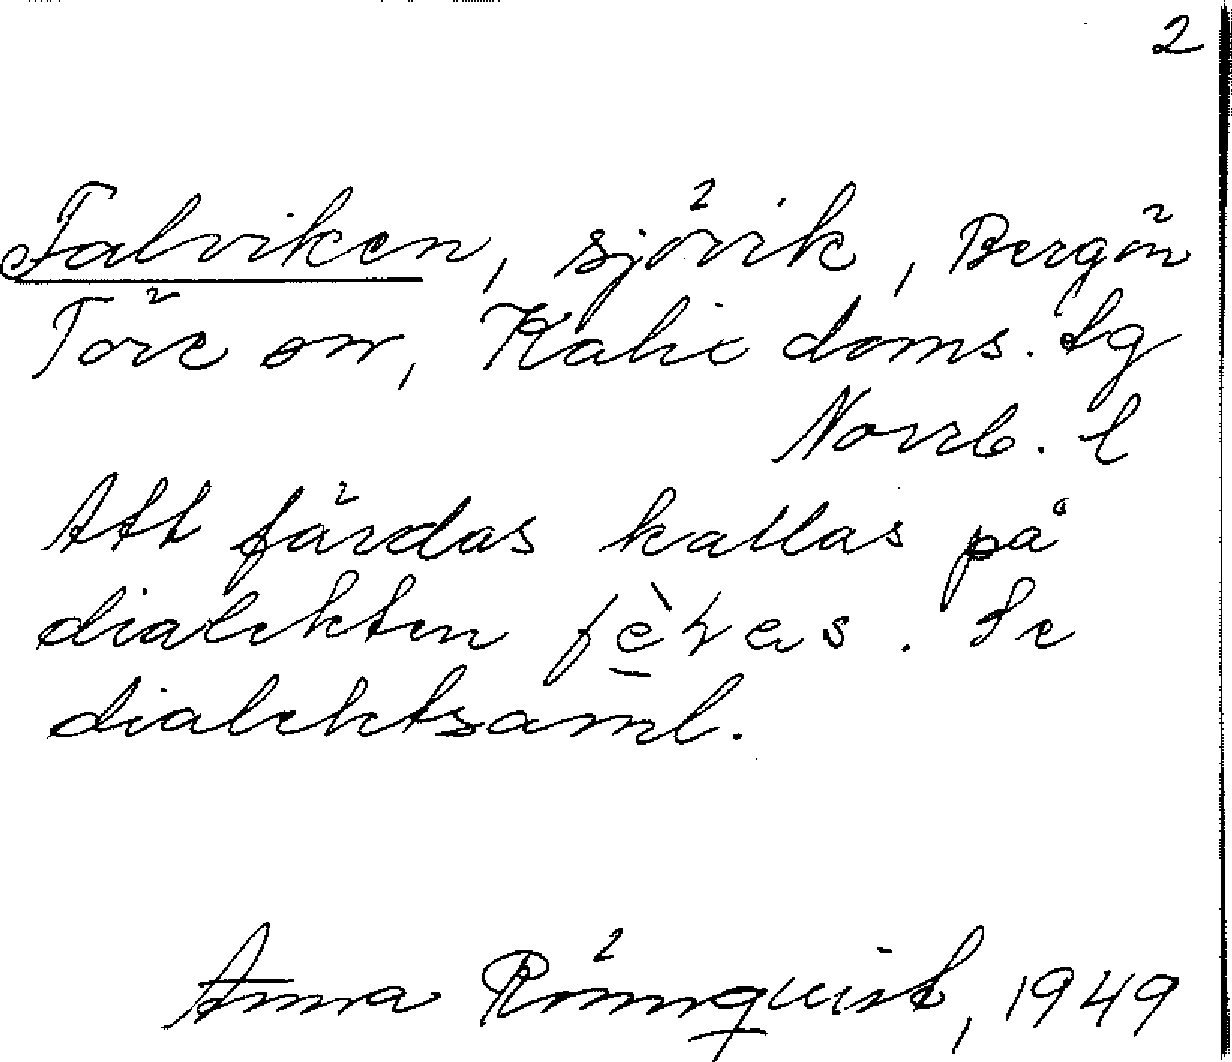 2
Falviken, sjövik, Bergön
Töre sn, Kalix doms. Lg
Norrb. l
Att färdas kallas på
dialekten Se
dialektsaml.
Anna Rönnqvist, 1949